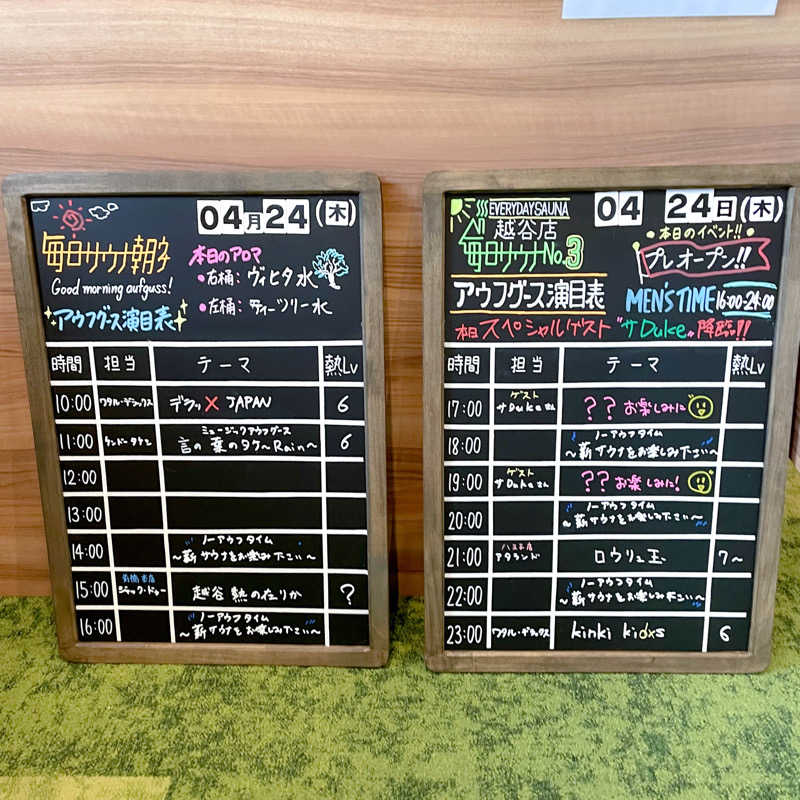 04月24(木)
毎日サウナ朝礼
Good morning aufguss!
アウフグース演目表
本日のアロマ
・右桶:ヴィヒタ水
・左桶:ティーツリー水
時間 担当 テーマ 熱Lv
10:00 ワタル・デラックス デラッ✕JAPAN 6
11:00 ケンドータケシ ミュージックアウフグース
言の葉のタケ〜Rain〜 6
12:00
13:00
14:00 ノーアウフタイム
〜薪サウナをお楽み下さい〜
15:00 前橋本店
ジャック・ドゥー 越谷 熱の在りか ?
16:00 ノーアウフタイム
〜薪サウナをお楽しみ下さい〜
EVERYDAY SAUNA
越谷店
毎日サウナNo.3
アウフグース演目表
04 24日(木)
・本日のイベント!!・
プレオープン!!
MEN'S TIME 16:00-24:00
本日スペシャルゲスト"サDuke"降臨!!
時間 担当 テーマ 熱Lv
17:00 ゲスト
サDukeさん ??お楽しみに
18:00 ノーアウフタイム
〜薪サウナをお楽しみ下さい〜
19:00 ゲスト
サDukeさん ??お楽しみに!
20:00 ノーアウフタイム
〜薪サウナをお楽しみ下さい〜
21:00 八王子店
アタランド ロウリュ玉 7〜
22:00 ノーアウフタイム
〜薪サウナをお楽しみ下さい〜
23:00 ワタル・デラックス kinki kidxs 6